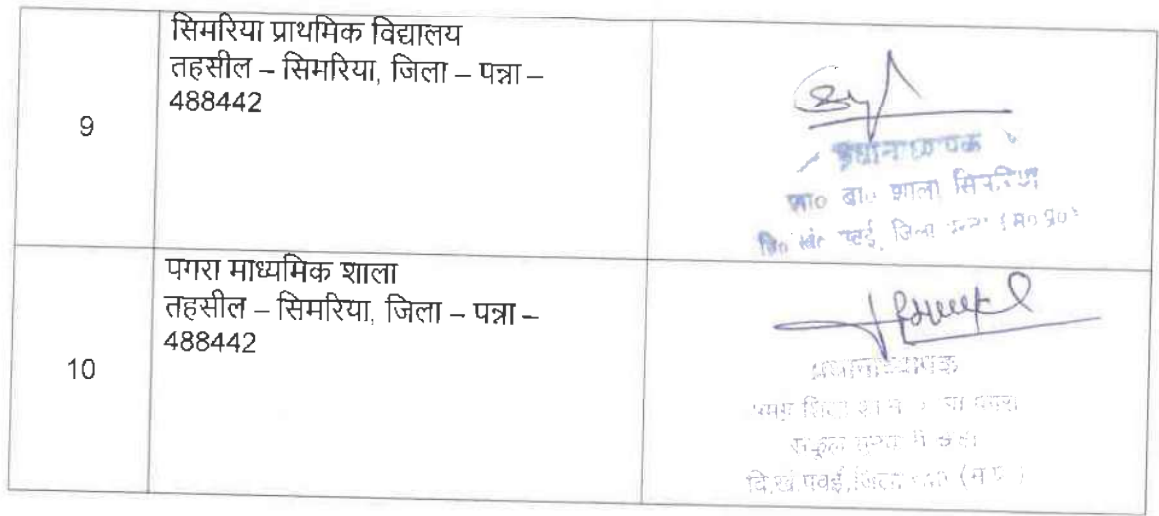 9
सिमरिया प्राथमिक विद्यालय
तहसील – सिमरिया, जिला – पन्ना –
488442
प्रधानाध्यापक
प्रा० बा० शाला सिमरिया
वि० खं० पवई, जिला पन्ना (म० प्र०)
10
पगरा माध्यमिक शाला
तहसील – सिमरिया, जिला – पन्ना –
488442
प्रधानाध्यापक
वि.खं.पवई,जिला